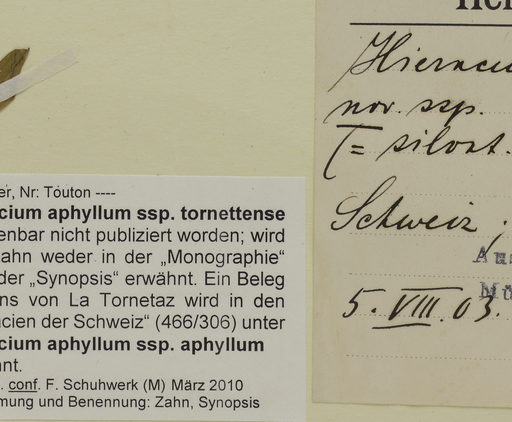 er, Nr: Touton ----
cium aphyllum ssp. tornettense
enbar nicht publiziert worden; wird
ahn weder in der „Monographie“
der „Synopsis“ erwähnt. Ein Beleg
ns von La Tornetaz wird in den
cien der Schweiz“ (466/306) unter
cium aphyllum ssp. aphyllum
nt.
. conf. F. Schuhwerk (M) März 2010
mung und Benennung: Zahn, Synopsis
Hieraciu
nov. ssp.
Schweiz,
5. VIII. 03.